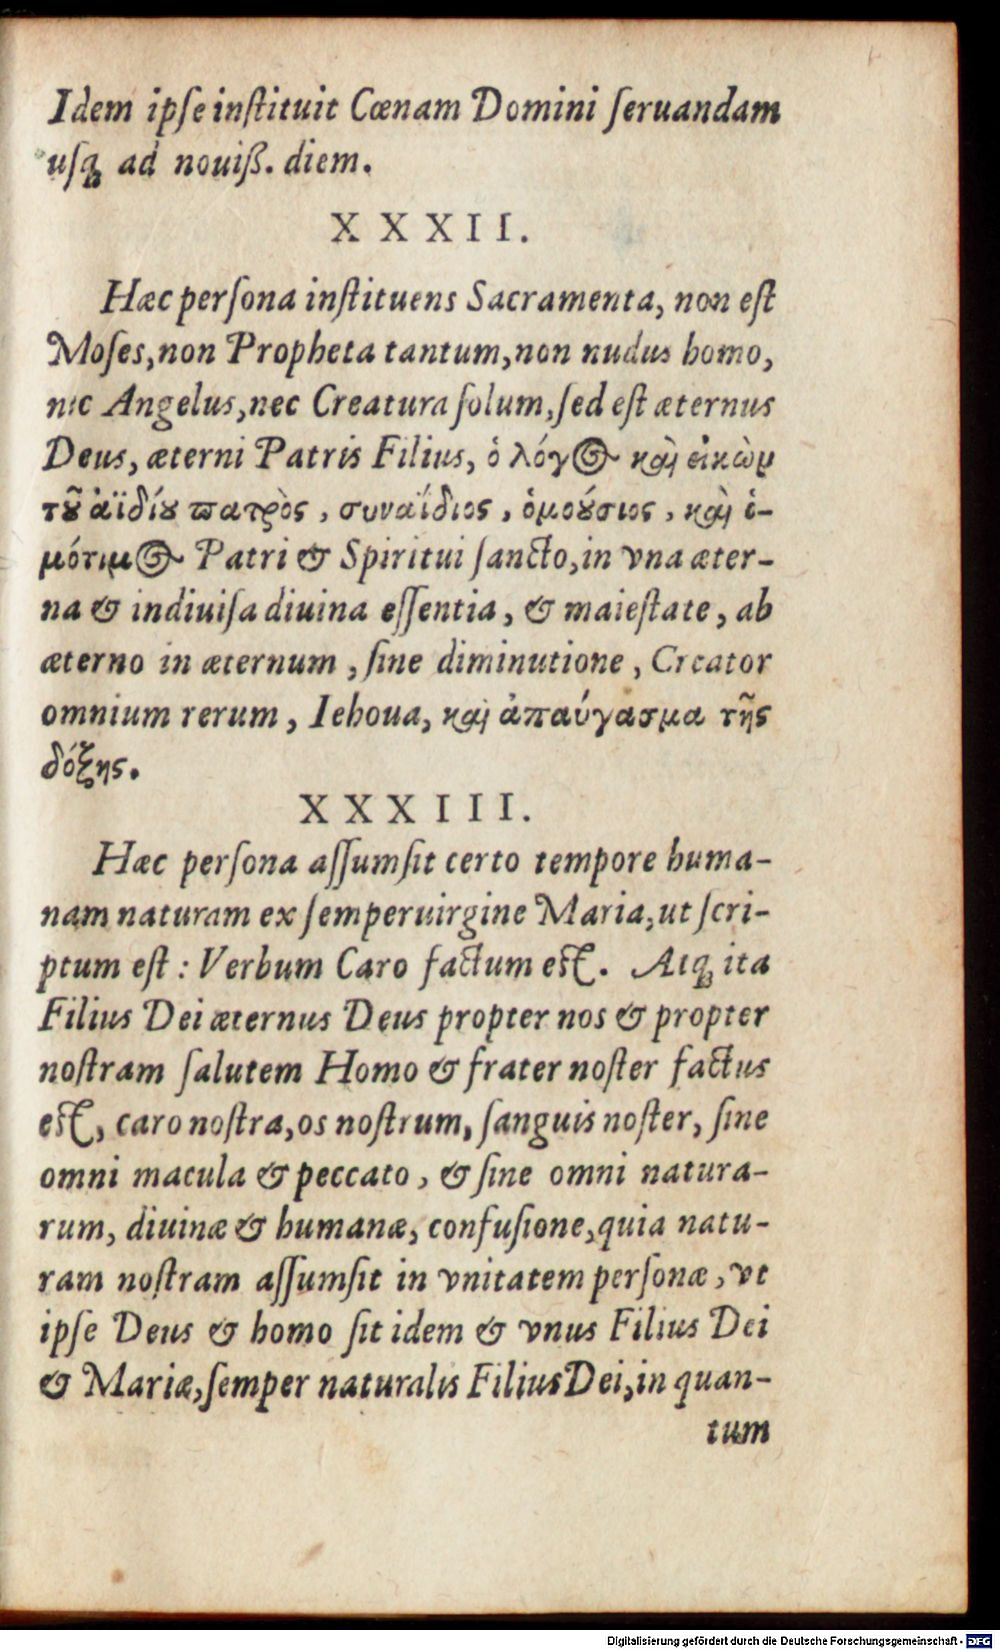 Idem ipſe inſtituit Cœnam Domini ſeruandam
uſq́ ad nouiß. diem.
XXXII.
Hæc perſona inſtituens Sacramenta, non eſt
Moſes, non Propheta tantum, non nudus homo,
nec Angelus, nec Creatura ſolum, ſed eſt æternus
Deus, æterni Patris Filius, ὁ λόγος καὶ εἰκὼν
τȣ͂ ἀϊδίȣ πατρὸς, συναΐδιος, ὁμοȣ́σιος, καὶ ὁ-
μότιμος Patri & Spiritui ſancto, in vna æter-
na & indiuiſa diuina eſſentia, & maieſtate, ab
æterno in æternum, ſine diminutione, Creator
omnium rerum, Iehoua, καὶ ἀπαύγασμα τῆς
δόξης.
XXXIII.
Hæc perſona aſſumſit certo tempore huma-
nam naturam ex ſemperuirgine Maria, ut ſcri-
ptum eſt: Verbum Caro factum eſt. Atq́ ita
Filius Dei æternus Deus propter nos & propter
noſtram ſalutem Homo & frater noſter factus
eſt, caro noſtra, os noſtrum, ſanguis noſter, ſine
omni macula & peccato, & ſine omni natura-
rum, diuinæ & humanæ, confuſione, quia natu-
ram noſtram aſſumſit in vnitatem perſonæ, vt
ipſe Deus & homo ſit idem & vnus Filius Dei
& Mariæ, ſemper naturalis Filius Dei, in quan-
tum
Digitalisierung gefördert durch die Deutsche Forschungsgemeinschaft - DFG